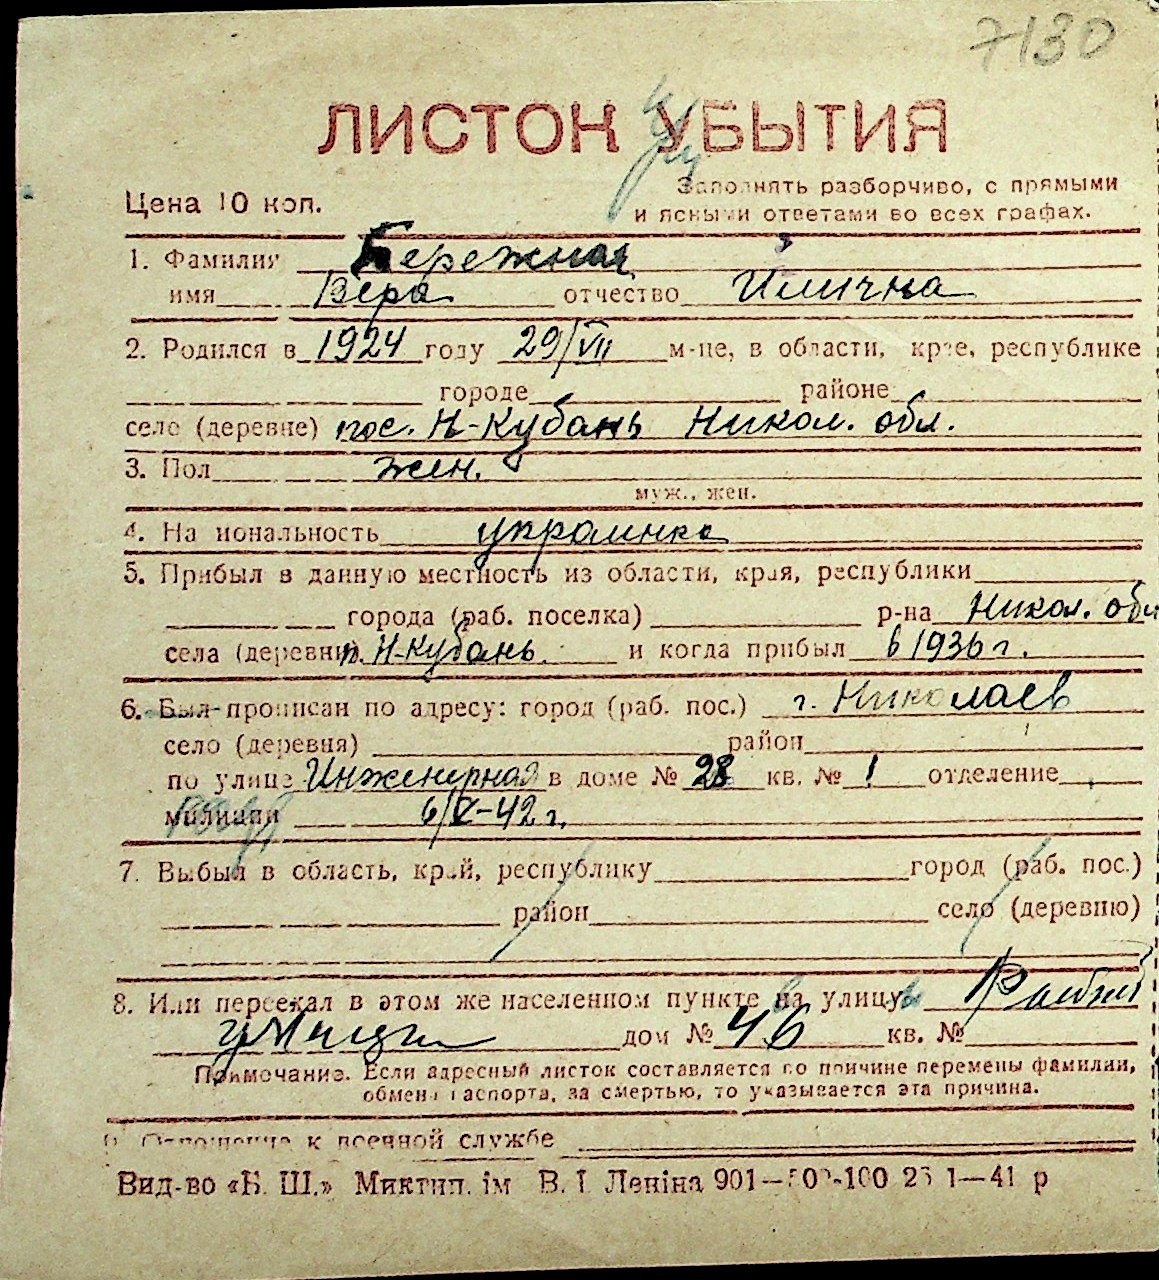 7130
ЛИСТОК УБЫТИЯ
Цена 10 коп.
Заполнять разборчиво, с прямыми
и ясными ответами во всех графах.
1. Фамилия Бережная
имя Вера отчество Илична
2. Родился в 1924 году 29/VII м-це, в области, крае, республике
городе районе
село (деревне) пос. Н-Кубань Никол. обл.
3. Пол жен.
муж., жен.
4. Национальность украинка
5. Прибыл в данную местность из области, края, республики
города (раб. поселка) р-на Никол. обл
села (деревни) п. Н-Кубань и когда прибыл в 1936 г.
6. Был прописан по адресу: город (раб. пос.) г. Николаев
село (деревня) район
по улице Инженерная в доме № 28 кв. № 1 отделение
милиции 6/X-42 г.
7. Выбыл в область, край, республику город (раб. пос.)
район село (деревню)
8. Или переехал в этом же населенном пункте на улицу
дом № 46 кв. №
Примечание. Если адресный листок составляется по причине перемены фамилии,
обмена паспорта, за смертью, то указывается эта причина.
9. Отношение к военной службе
Вид-во «Б. Ш.» Миктип. ім В. І Леніна 901—500-100 25 1—41 р